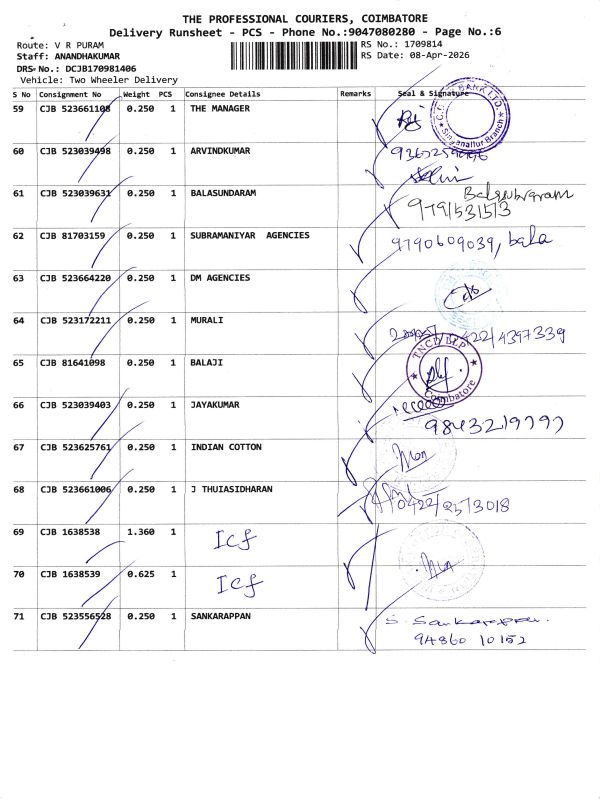 THE PROFESSIONAL COURIERS, COIMBATORE
Delivery Runsheet - PCS - Phone No.:9047080280 - Page No.:6
Route: V R PURAM RS No.: 1709814
Staff: ANANDHAKUMAR RS Date: 08-Apr-2026
DRS No.: DCJB170981406
Vehicle: Two Wheeler Delivery
S No Consignment No Weight PCS Consignee Details Remarks Seal & Signature
59 CJB 523661108 0.250 1 THE MANAGER
60 CJB 523039498 0.250 1 ARVINDKUMAR
61 CJB 523039631 0.250 1 BALASUNDARAM
9791531513
62 CJB 81703159 0.250 1 SUBRAMANIYAR AGENCIES 9790609039, bala
63 CJB 523664220 0.250 1 DM AGENCIES
64 CJB 523172211 0.250 1 MURALI 0422/4397339
65 CJB 81641098 0.250 1 BALAJI Coimbatore
66 CJB 523039403 0.250 1 JAYAKUMAR
67 CJB 523625761 0.250 1 INDIAN COTTON
68 CJB 523661006 0.250 1 J THUIASIDHARAN 0422/2573018
69 CJB 1638538 1.360 1 Icf
70 CJB 1638539 0.625 1 Icf
71 CJB 523556528 0.250 1 SANKARAPPAN S. Sankarappan.
94860 10152